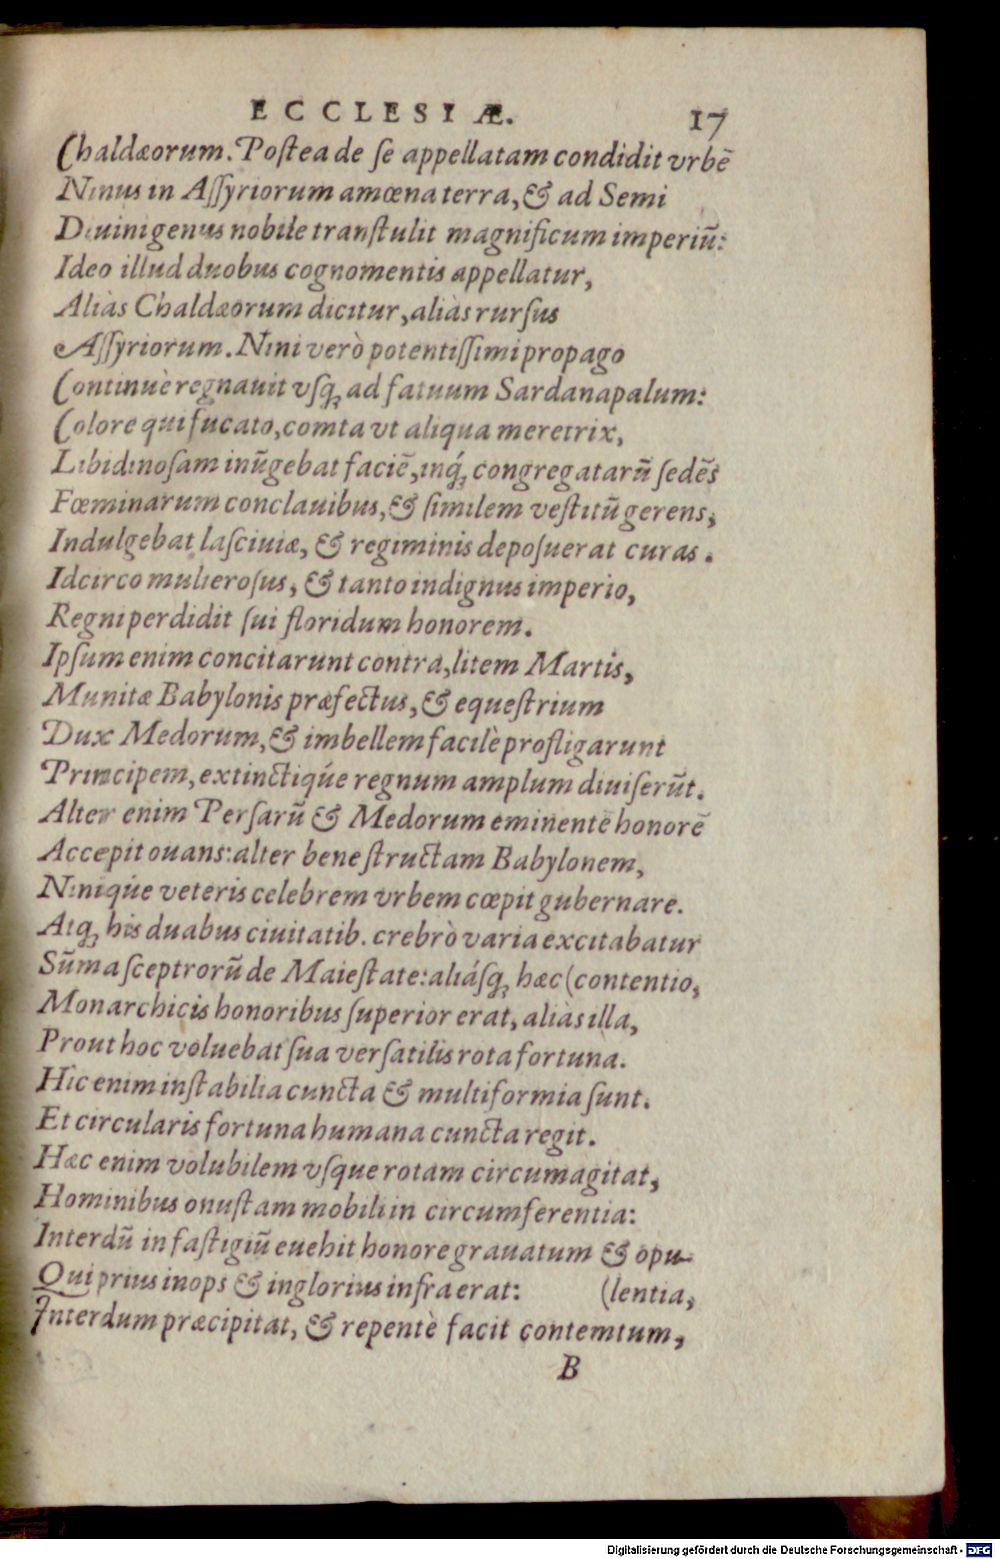 ECCLESIÆ. 17
Chaldæorum. Postea de se appellatam condidit vrbē
Ninus in Aſſyriorum amœna terra, & ad Semi
Diuinigenus nobile tranſtulit magnificum imperiū:
Ideo illud duobus cognomentis appellatur,
Aliàs Chaldæorum dicitur, aliàs rurſus
Aſſyriorum. Nini verò potentiſſimi propago
Continuè regnauit vſq; ad fatuum Sardanapalum:
Colore qui fucato, comta vt aliqua meretrix,
Libidinoſam inūgebat faciē, inq́; congregatarū ſedēs
Fœminarum conclauibus, & ſimilem veſtitū gerens,
Indulgebat laſciuiæ, & regiminis depoſuerat curas.
Idcirco mulieroſus, & tanto indignus imperio,
Regni perdidit ſui floridum honorem.
Ipſum enim concitarunt contra, litem Martis,
Munitæ Babylonis præfectus, & equeſtrium
Dux Medorum, & imbellem facilè profligarunt
Principem, extinctiqúe regnum amplum diuiſerūt.
Alter enim Perſarū & Medorum eminentē honorē
Accepit ouans: alter bene ſtructam Babylonem,
Niniqúe veteris celebrem vrbem cœpit gubernare.
Atq; his duabus ciuitatib. crebrò varia excitabatur
Sūma ſceptrorū de Maieſtate: aliáſq; hæc (contentio,
Monarchicis honoribus ſuperior erat, aliàs illa,
Prout hoc voluebat ſua verſatilis rota fortuna.
Hic enim inſtabilia cuncta & multiformia ſunt.
Et circularis fortuna humana cuncta regit.
Hæc enim volubilem vſque rotam circumagitat,
Hominibus onuſtam mobili in circumferentia:
Interdū in faſtigiū euehit honore grauatum & opu-
Qui prius inops & inglorius infra erat: (lentia,
Interdum præcipitat, & repentè facit contemtum,
B
Digitalisierung gefördert durch die Deutsche Forschungsgemeinschaft - DFG